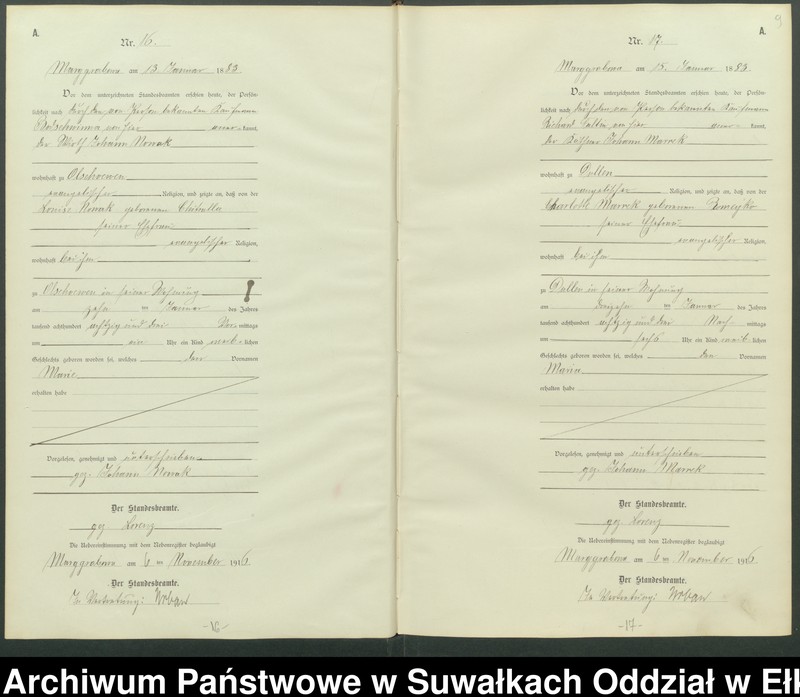 A.
Nr. 16.
Marggrabowa am 13 Januar 1883
Vor dem unterzeichneten Standesbeamten erschien heute, der Persön-
lichkeit nach durch den von Person bekannten Kaufmann
von hier kannt,
der Wirth Johann Nowak
wohnhaft zu Olschoewen
evangelischer Religion, und zeigte an, daß von der
Louise Nowak geborenen
seiner Ehefrau
evangelischer Religion,
wohnhaft bei ihm
zu Olschoewen in seiner Wohnung
am zehn ten Januar des Jahres
tausend achthundert achtzig und drei Vor mittags
um ein Uhr ein Kind weib lichen
Geschlechts geboren worden sei, welches den Vornamen
Marie
erhalten habe
Vorgelesen, genehmigt und unterschrieben
gez. Johann Nowak
Der Standesbeamte.
gez Lorenz
Die Uebereinstimmung mit dem Nebenregister beglaubigt
Marggrabowa am 6 ten November 1916
Der Standesbeamte.
In Vertretung: Urban
-16-
9
A.
Nr. 17.
Marggrabowa am 15. Januar 1883.
Vor dem unterzeichneten Standesbeamten erschien heute, der Persön-
lichkeit nach durch den von Person bekannten Kaufmann
Richard von hier kannt,
der Käthner Johann Marrek
wohnhaft zu Dullen
evangelischer Religion, und zeigte an, daß von der
Charlotte Marrek geborenen
seiner Ehefrau
evangelischer Religion,
wohnhaft bei ihm
zu Dullen in seiner Wohnung
am dreizehn ten Januar des Jahres
tausend achthundert achtzig und drei Nach mittags
um sechs Uhr ein Kind weib lichen
Geschlechts geboren worden sei, welches den Vornamen
Maria
erhalten habe
Vorgelesen, genehmigt und unterschrieben
gez. Johann Marrek
Der Standesbeamte.
gez Lorenz
Die Uebereinstimmung mit dem Nebenregister beglaubigt
Marggrabowa am 6 ten November 1916
Der Standesbeamte.
In Vertretung: Urban
-17-
Archiwum Państwowe w Suwałkach Oddział w Eł